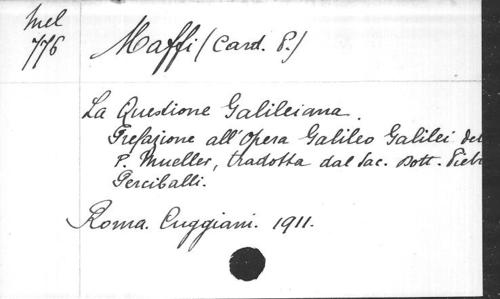 Mel
776
Maffi (Card. P.)
La Questione Galileiana.
Prefazione all'Opera Galileo Galilei del
P. Mueller, tradotta dal Sac. Dott. Pietr
Perciballi.
Roma. Cuggiani. 1911.